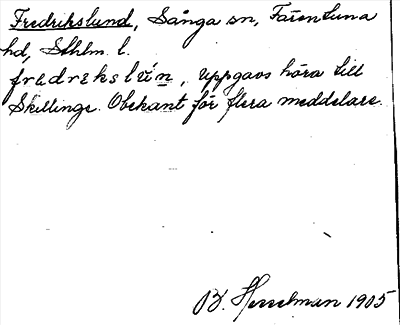 Fredrikslund, Sånga sn, Färentuna
hd, Sthlm. l.
fredrekslún, uppgavs höra till
Skillinge. Obekant för flera meddelare.
B. Hesselman 1905